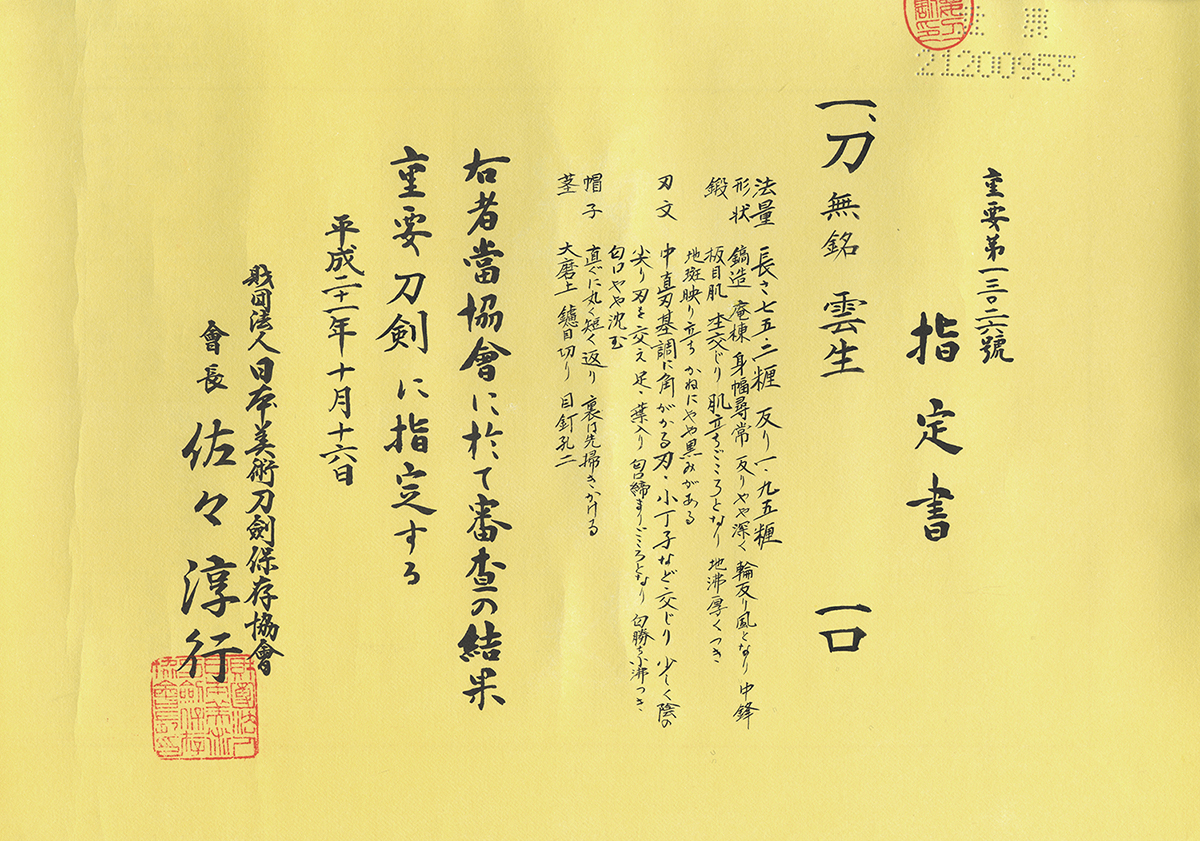 重要
21200955
重要第一三〇二六號
指定書
一、刀 無銘 雲生 一口
法量 長さ七五・二糎 反り一・九五糎
形状 鎬造 庵棟 身幅尋常 反りやや深く 輪反り風となり 中鋒
鍛 板目肌 杢交じり 肌立ちごころとなり 地沸厚くつき
地斑映り立ち かねにやや黒みがある
刃文 中直刃基調に角がかる刃・小丁子など交じり 少しく陰の
尖り刃を交え 足・葉入り 匂口締まりごころとなり 匂勝ち小沸つき
匂口やや沈む
帽子 直ぐに丸く短く返り 裏は先掃きかける
茎 大磨上 鑢目切り 目釘孔二
右者當協會に於て審査の結果
重要刀剣に指定する
平成二十一年十月十六日
財団法人日本美術刀劍保存協會
會長 佐々淳行